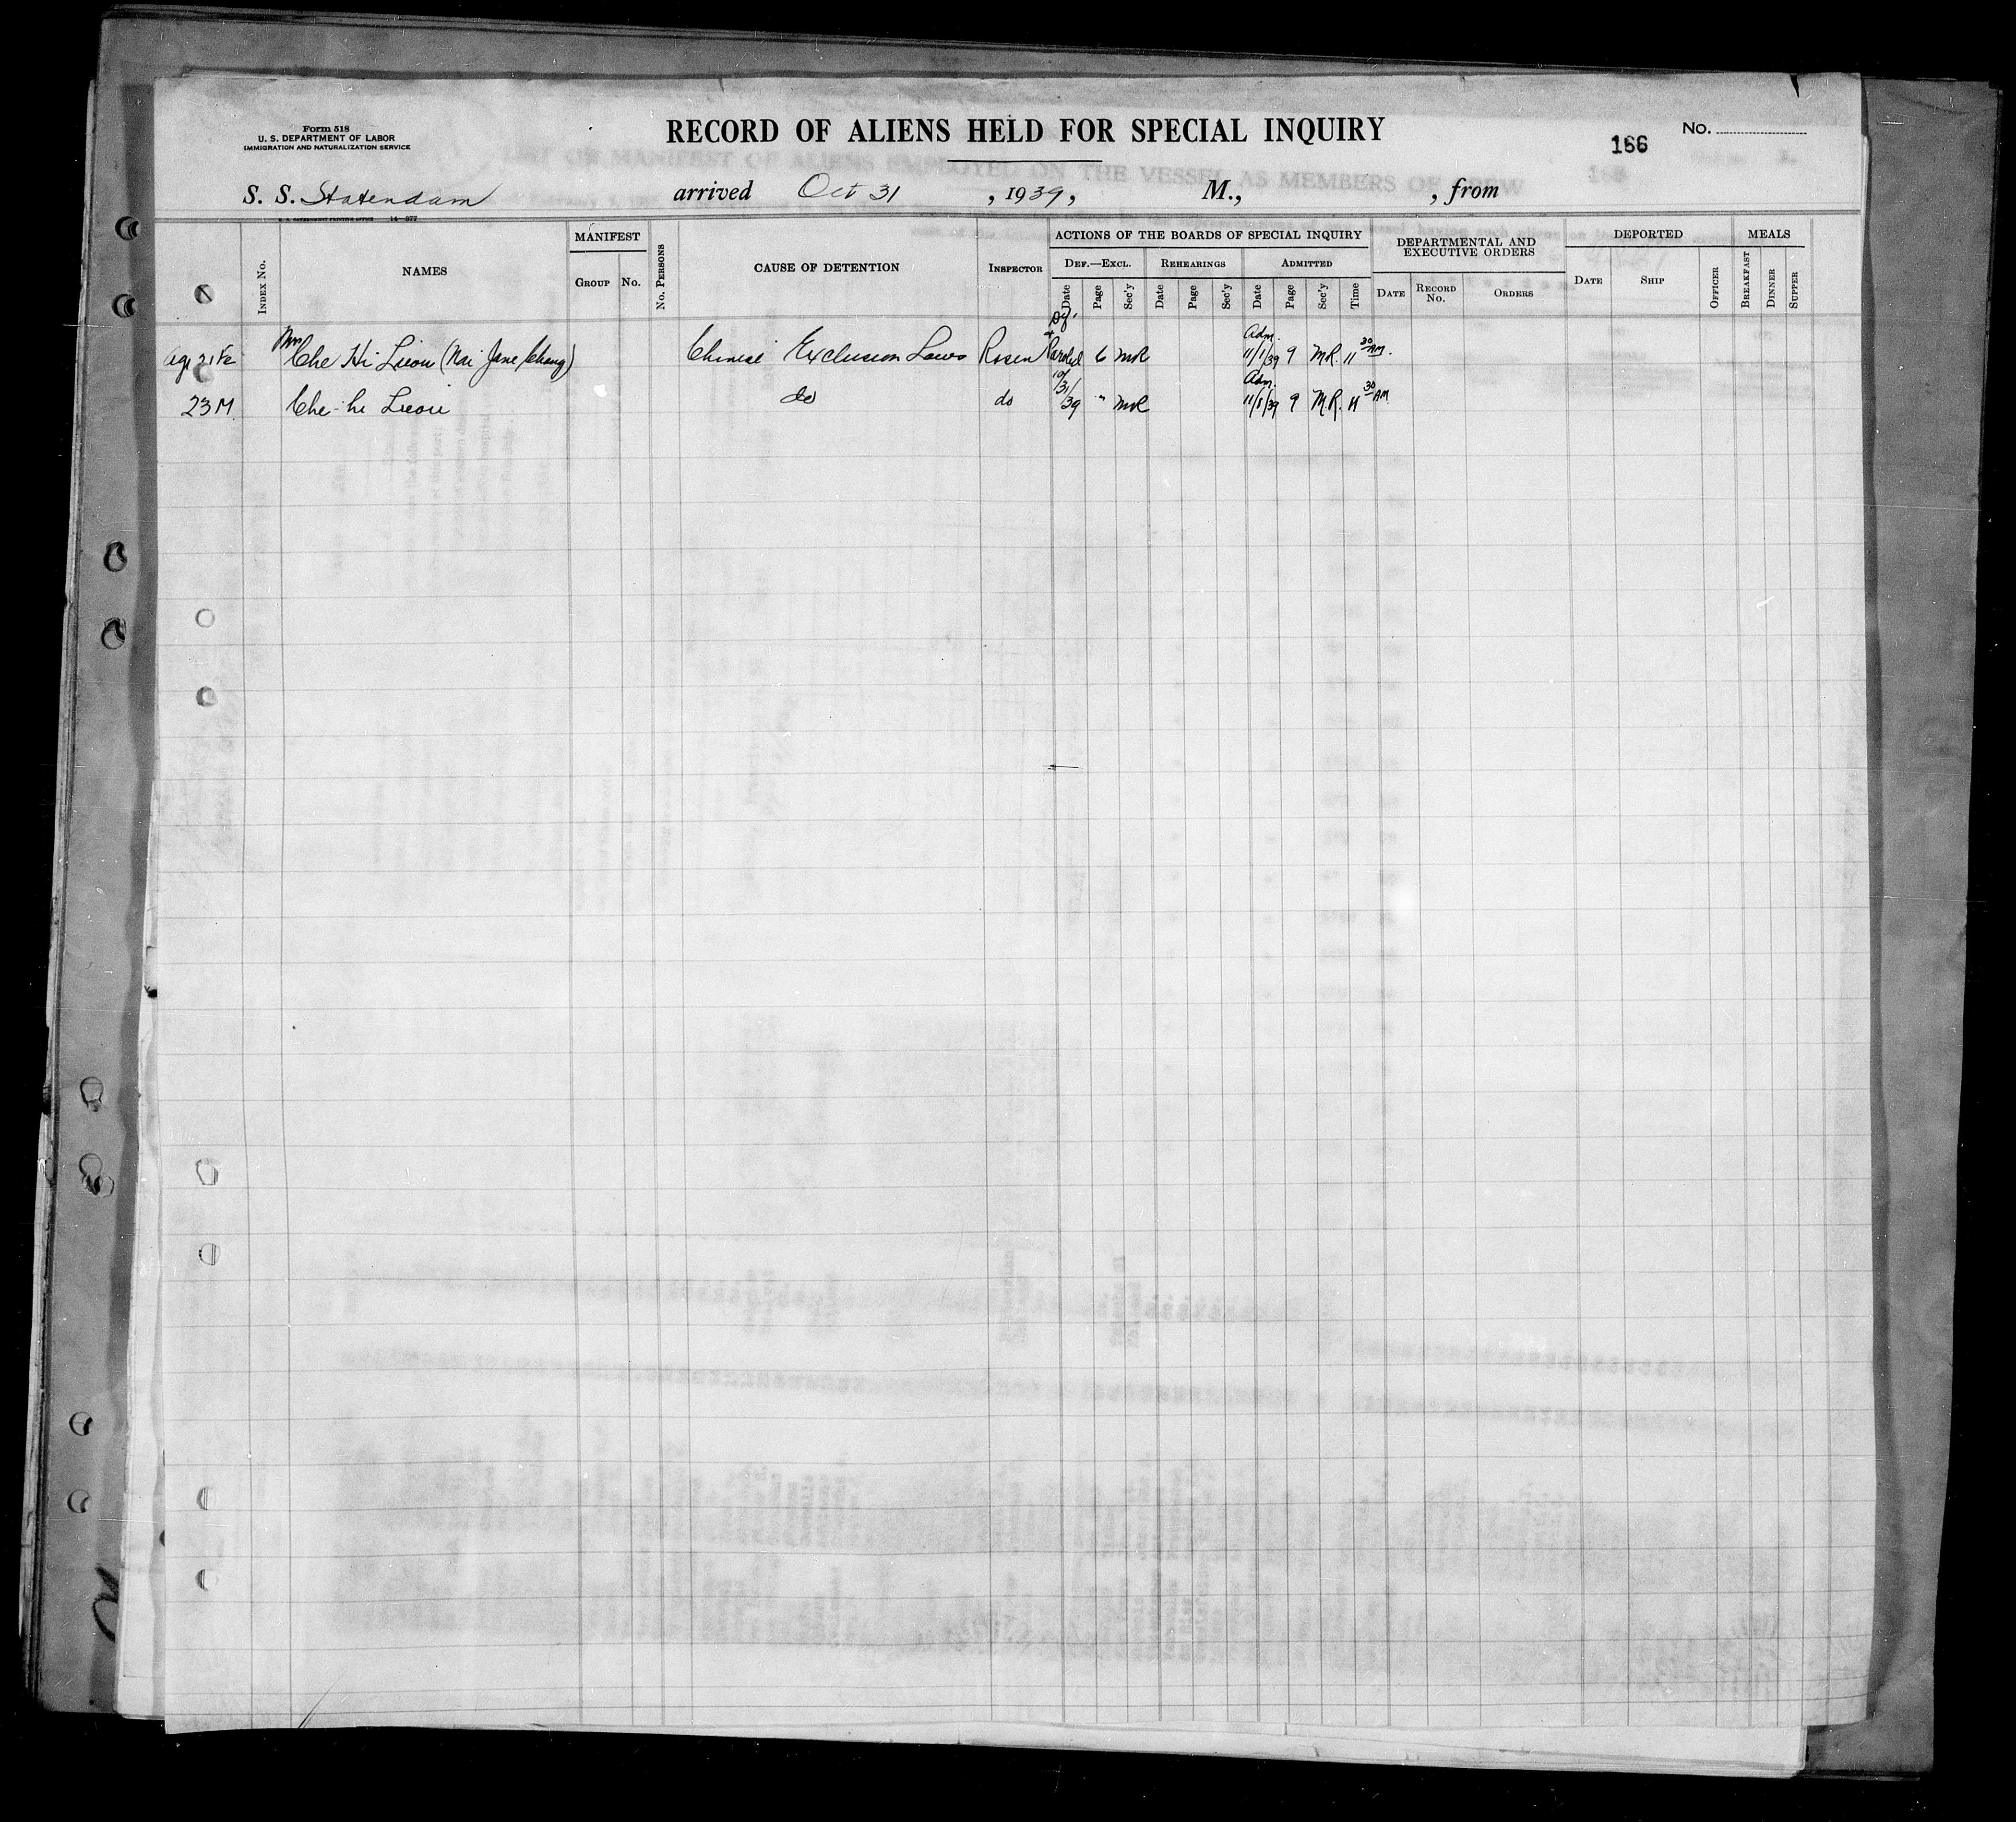 Form 518
U. S. DEPARTMENT OF LABOR
IMMIGRATION AND NATURALIZATION SERVICE
RECORD OF ALIENS HELD FOR SPECIAL INQUIRY
166
No.
S. S. Statendam arrived Oct 31, 1939, M., , from
INDEX No.
NAMES
MANIFEST
GROUP No.
No. PERSONS
CAUSE OF DETENTION
INSPECTOR
ACTIONS OF THE BOARDS OF SPECIAL INQUIRY
DEF.—EXCL. REHEARINGS ADMITTED
Date Page Sec'y Date Page Sec'y Date Page Sec'y Time
DEPARTMENTAL AND
EXECUTIVE ORDERS
DATE RECORD No. ORDERS
DEPORTED
DATE SHIP OFFICER
MEALS
BREAKFAST DINNER SUPPER
Age 21 Fe Mrs Che Hi Liou (Nai Jane Chang) Chinese Exclusion Laws Rosen Paroled 6 MR Adm. 11/1/39 9 M.R. 11 30 AM.
23 M Che-hi Liou do do 10/31/39 " MR Adm. 11/1/39 9 M.R. 11 30 AM